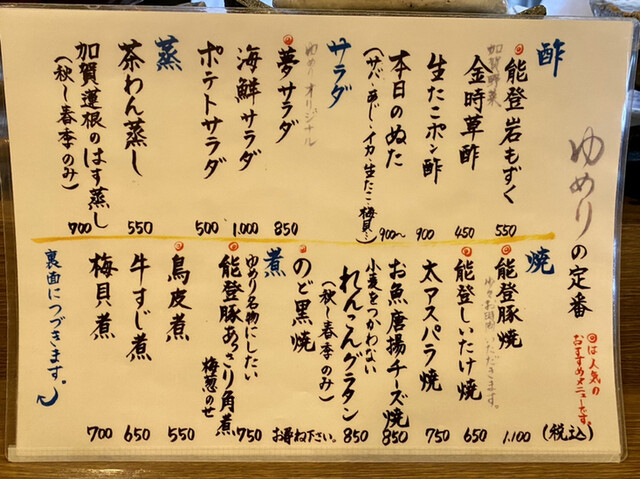 ゆめりの定番
◎は人気の
おすすめメニューです。
(税込)
酢
◎能登岩もずく 550
加賀野菜
金時草酢 450
生たこポン酢 900
本日のぬた 900〜
(サバ・あじ・イカ・生たこ・梅貝…)
サラダ
ゆめりオリジナル
◎夢サラダ 850
海鮮サラダ 1,000
ポテトサラダ 500
蒸
茶わん蒸し 550
加賀蓮根のはす蒸し 700
(秋〜春季のみ)
焼
◎能登豚焼 1,100
いただきます。
◎能登しいたけ焼 650
太アスパラ焼 750
お魚唐揚チーズ焼 850
小麦をつかわない
れんこんグラタン 850
(秋〜春季のみ)
◎のど黒焼 お尋ね下さい。
煮
ゆめり名物にしたい
◎能登豚あっさり角煮 750
梅葱のせ
◎鳥皮煮 550
牛すじ煮 650
梅貝煮 700
裏面につづきます。